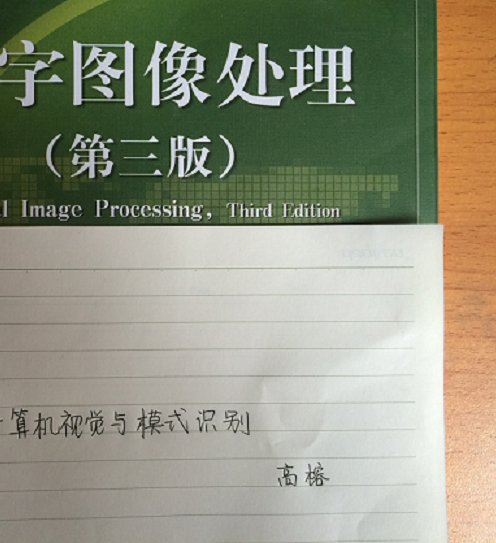 字图像处理
（第三版）
l Image Processing, Third Edition
算机视觉与模式识别
高榕